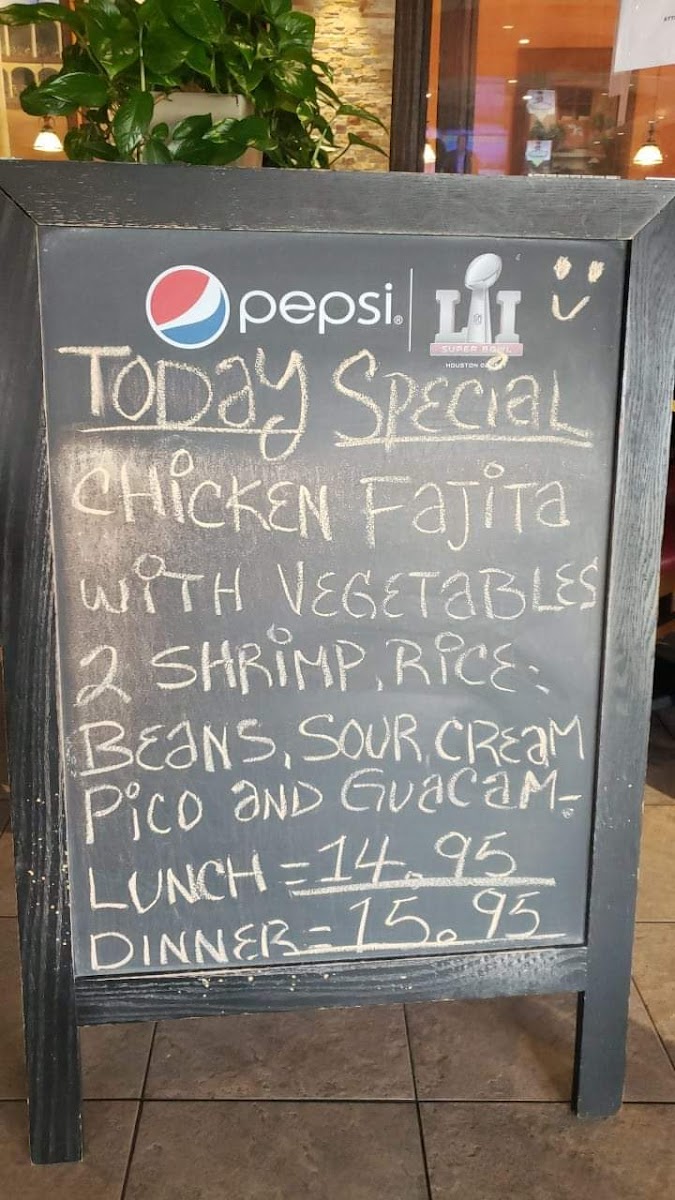 pepsi®
LI
SUPER BOWL
TODaY SPECiaL
CHiCKEN FajiTa
WiTH VEGETaBLES
2 SHRiMP, RiCE.
BEaNS, SOUR, CREaM
PiCO aND GUaCaM-
LUNCH = 14.95
DINNER = 15.95